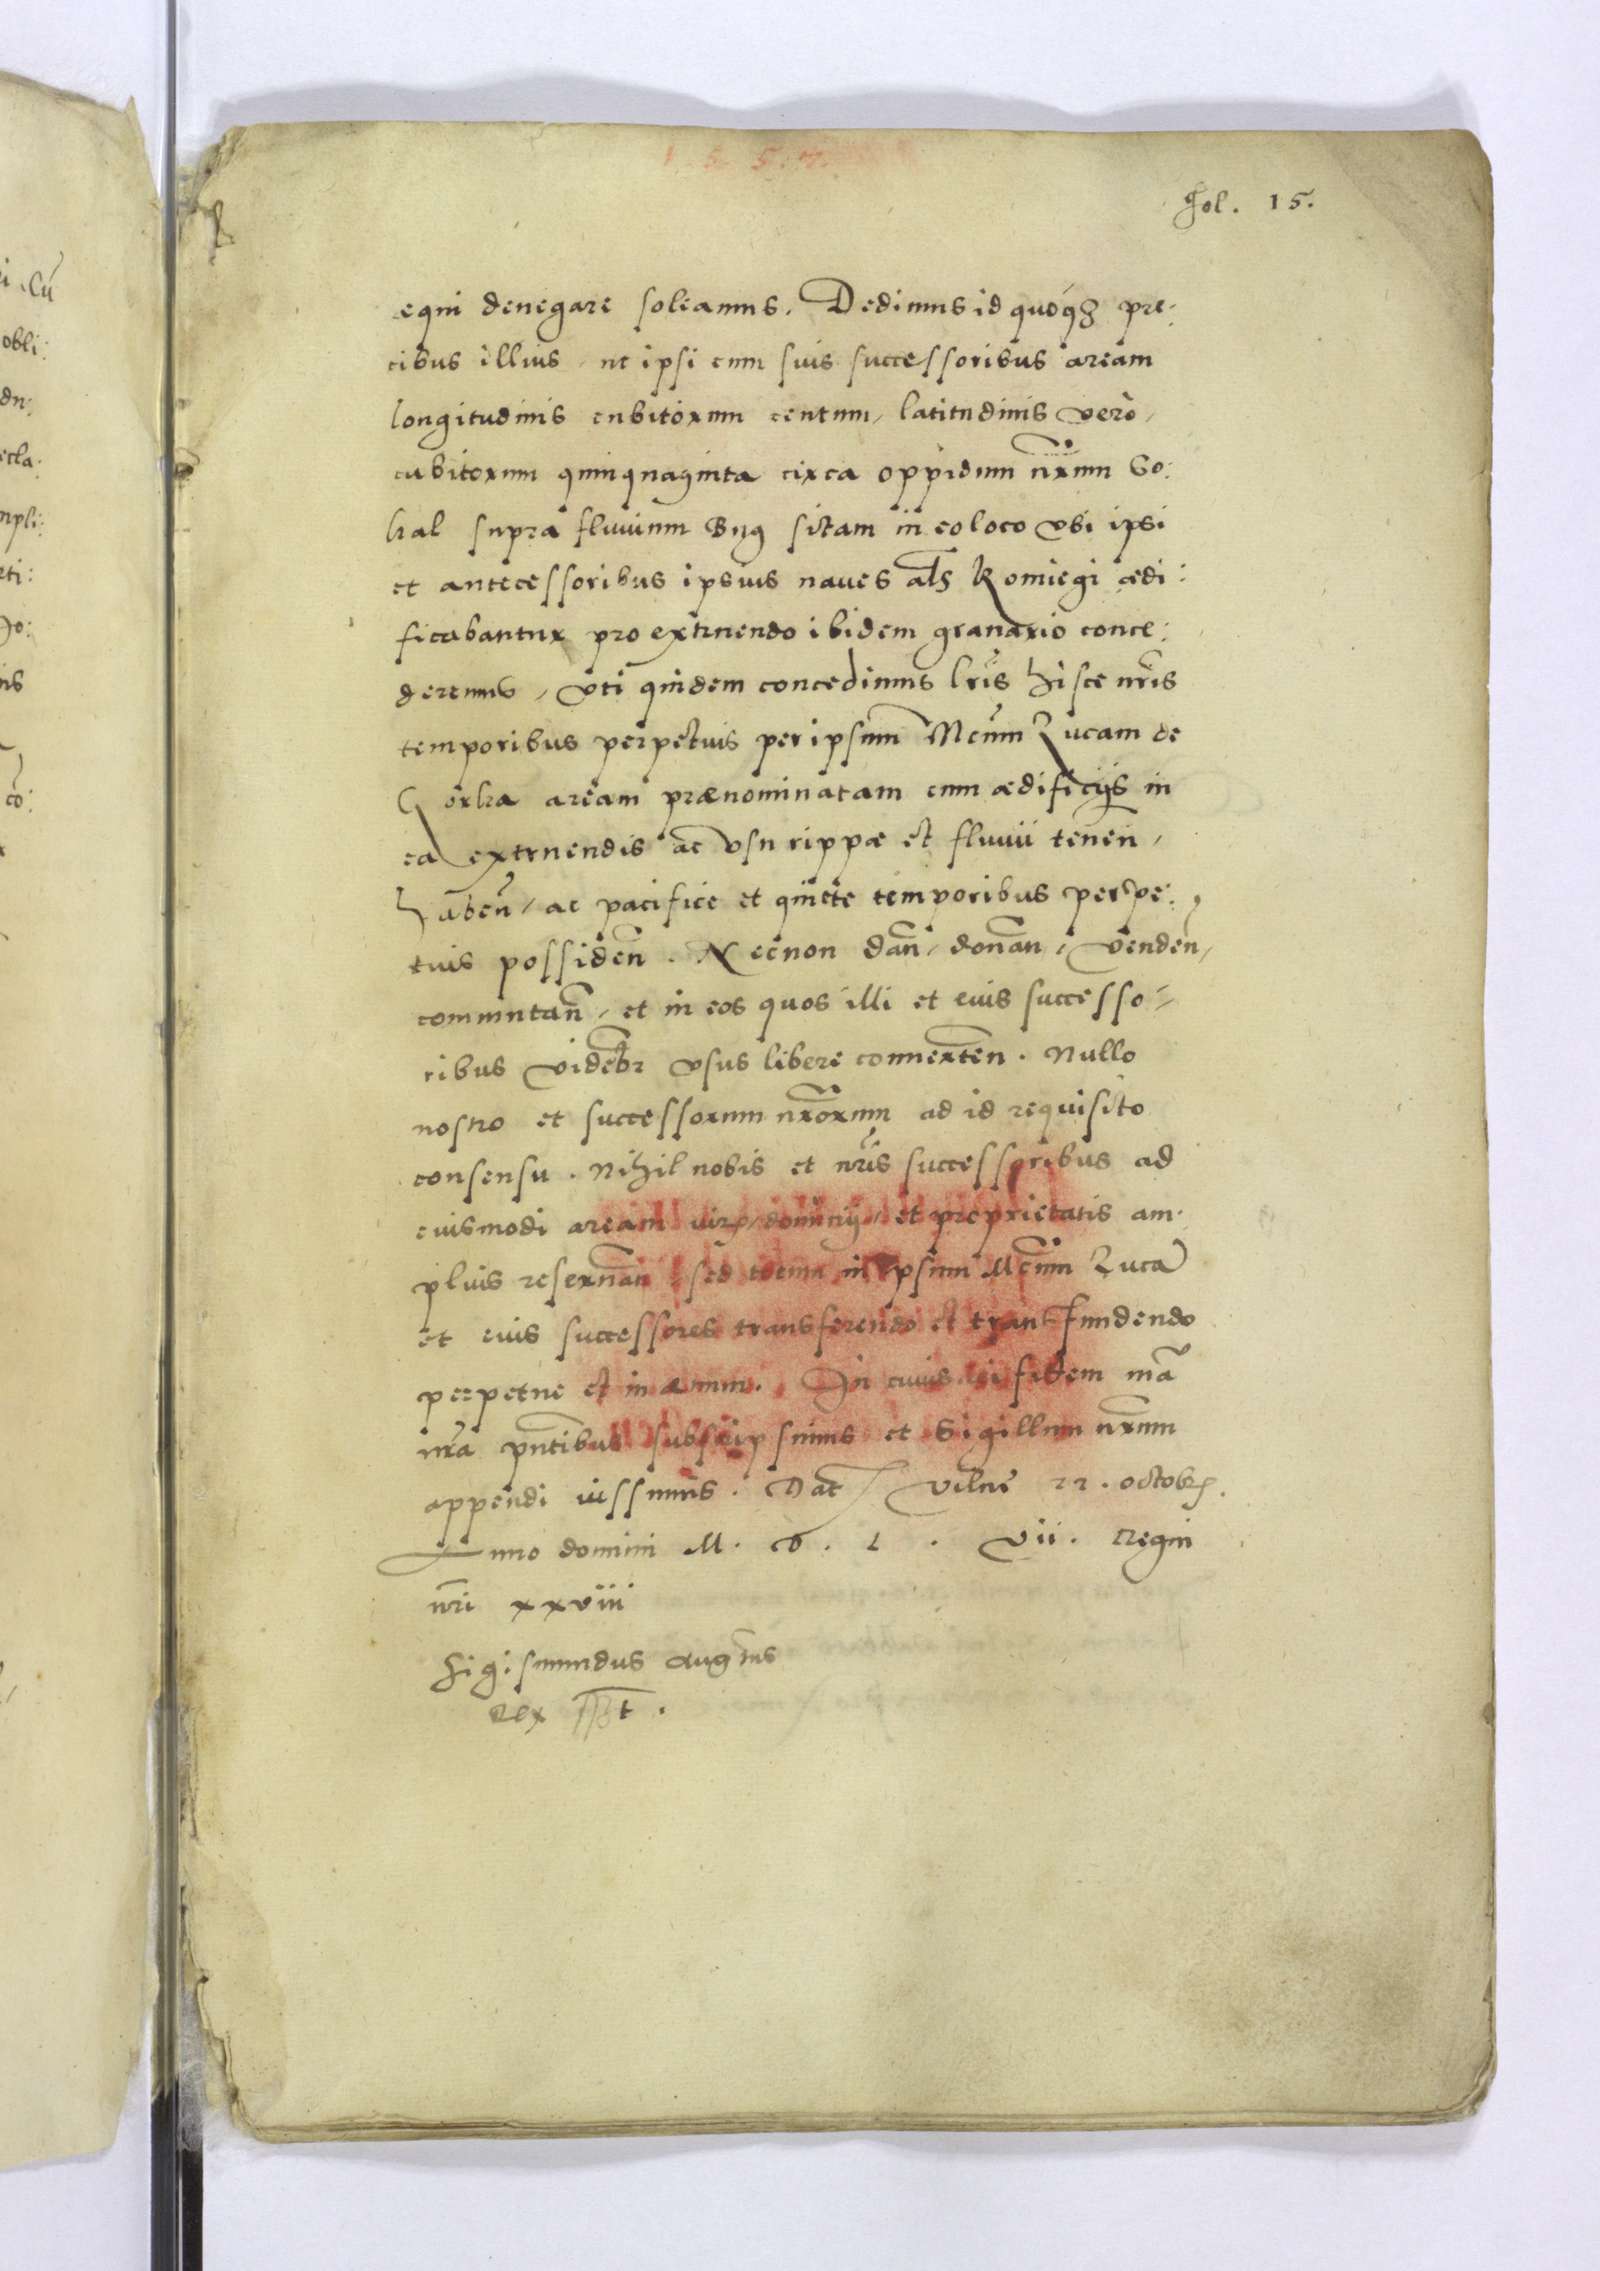 1.5.5.7.
Fol. 15.
æqui denegare soleamus. Dedimus id quoq3 pre:
cibus illius, ut ipsi cum suis successoribus aream
longitudinis cubitorum centum, latitudinis vero,
cubitorum quinquaginta circa oppidum nrum So:
kal supra fluvium Bug sitam in eo loco vbi ipsi
et antecessoribus ipsius naves als Komiegi ædi:
ficabantur pro extruendo ibidem granario conce:
deremus, vti quidem concedimus lris hisce nris
temporibus perpetuis per ipsum Mcum Lucam de
Gorka aream prænominatam cum ædificiis in
ea extruendis ac vsu rippæ et fluvii tenen,
haben, ac pacifice et quiete temporibus perpe:
tuis possiden. Necnon dan, donan, venden,
commutan, et in eos quos illi et eius successo=
ribus videbr vsus libere converten. Nullo
nostro et successorum nrorum ad id requisito
consensu. Nihil nobis et nris successoribus ad
eiusmodi aream iuris, dominii, et proprietatis am:
plius reservan sed in ipsum Mcum Luca
et eius successores transferendo et transfundendo
perpetue et in ævum. In cuius rei fidem ma
nra pntibus subscripsimus et Sigillum nrum
appendi iussimus. Dat Vilne 22. octobr.
Anno domini M. D. L. vii. Regni
nri xxviii
Sigismundus Augtus
Rex sst.